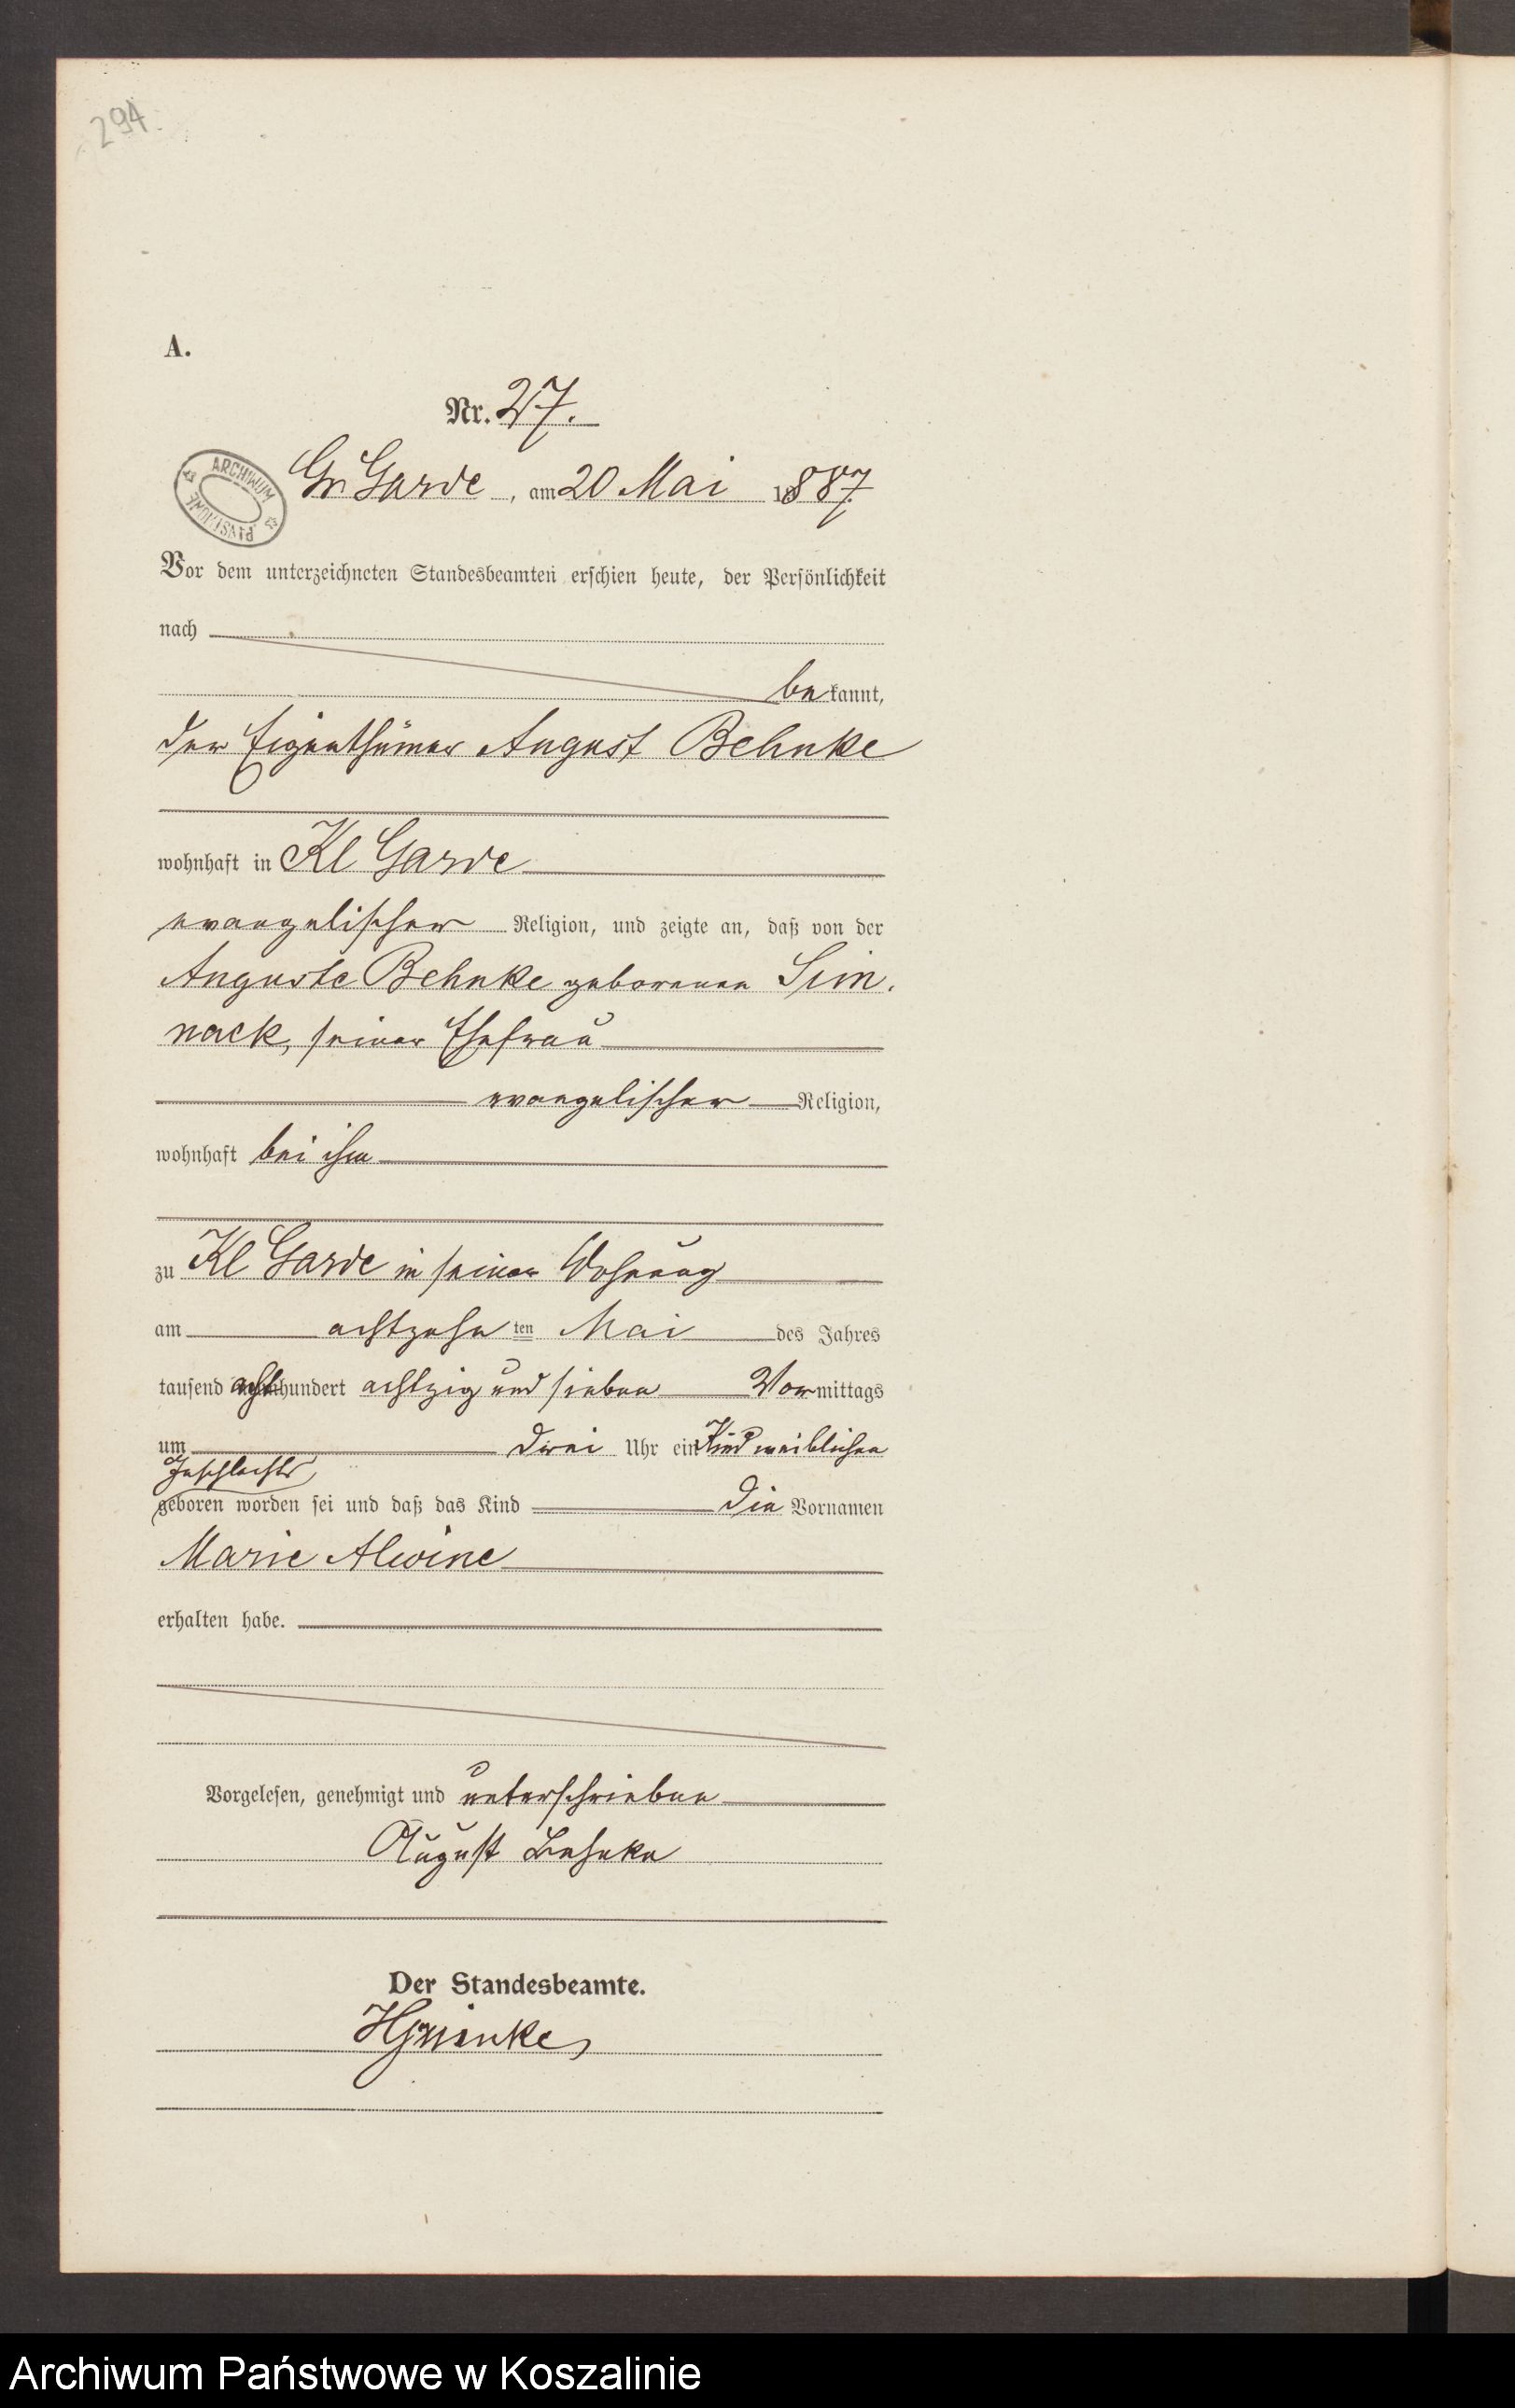 294.
A.
Nr. 27.
ARCHIWUM PAŃSTWOWE
Gr. Garde, am 20 Mai 1887.
Vor dem unterzeichneten Standesbeamten erschien heute, der Persönlichkeit
nach
bekannt,
der Eigenthümer August Behnke
wohnhaft in Kl Garde
evangelischer Religion, und zeigte an, daß von der
Auguste Behnke geborenen Sim.
nack, seiner Ehefrau
evangelischer Religion,
wohnhaft bei ihm
zu Kl Garde in seiner Wohnung
am achtzehnten Mai des Jahres
tausend achthundert achtzig und sieben Vormittags
um drei Uhr ein Kind weiblichen
Geschlechts
geboren worden sei und daß das Kind die Vornamen
Marie Alwine
erhalten habe.
Vorgelesen, genehmigt und unterschrieben
August Behnke
Der Standesbeamte.
Archiwum Państwowe w Koszalinie